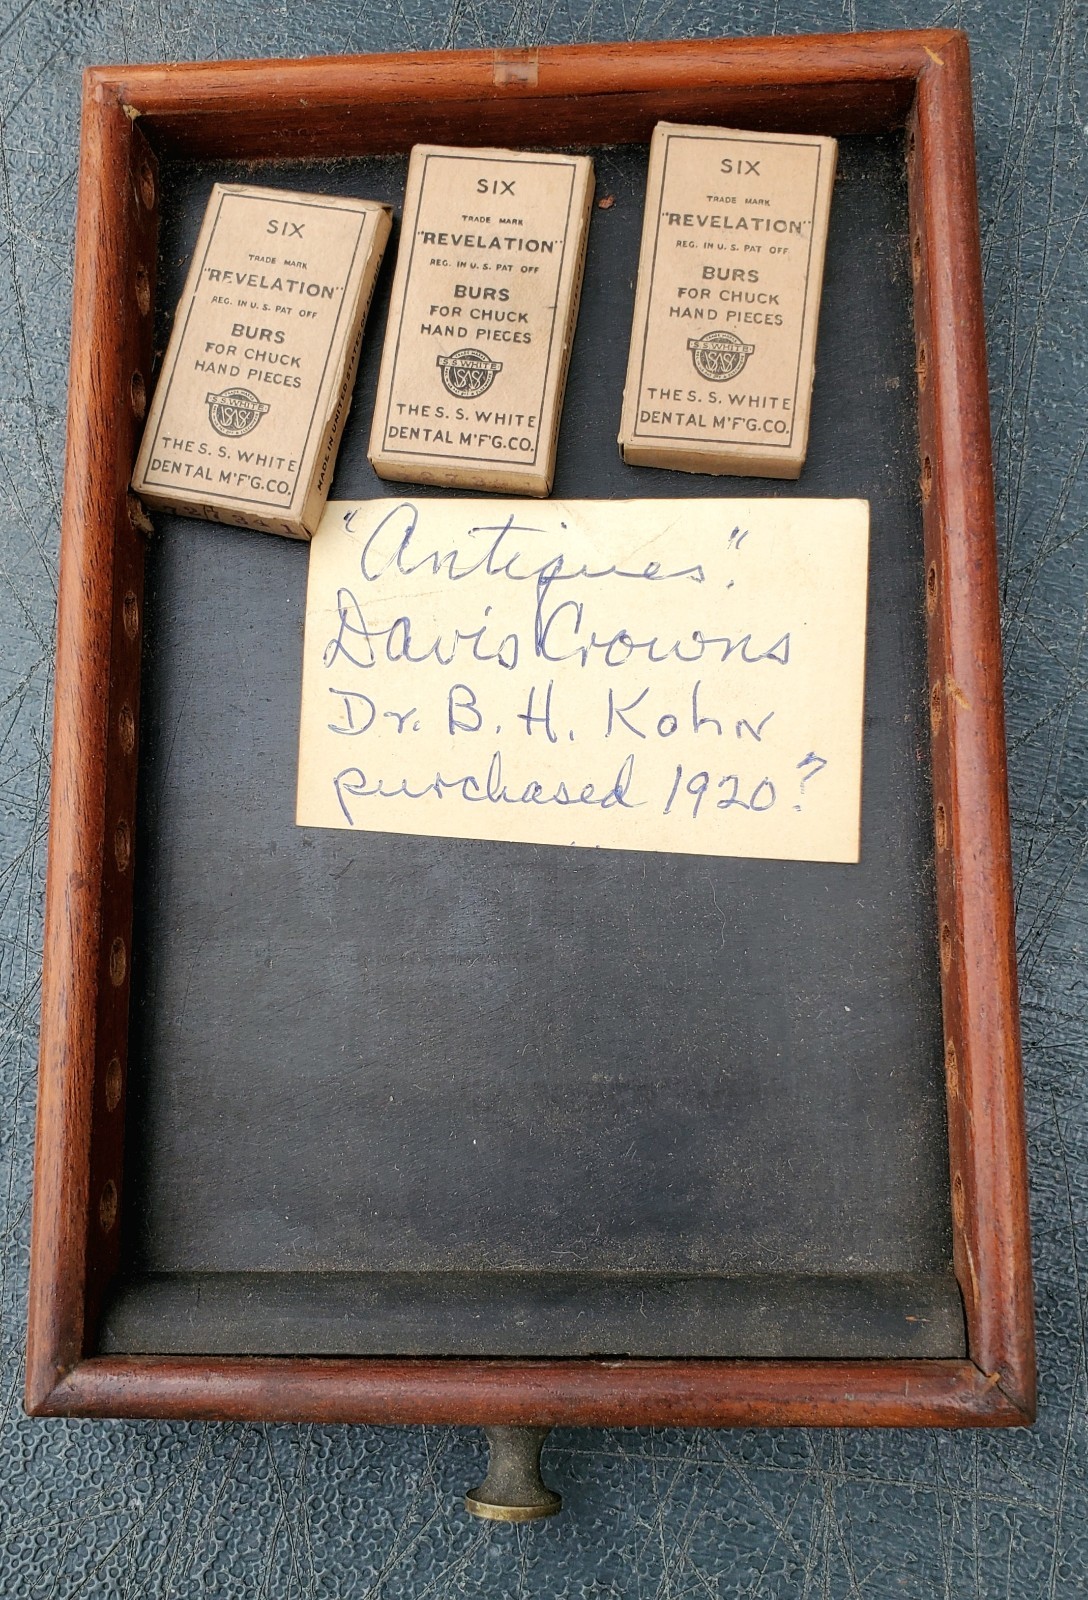 SIX
TRADE MARK
"REVELATION"
REG. IN U. S. PAT OFF
BURS
FOR CHUCK
HAND PIECES
S.S.WHITE
THE S. S. WHITE
DENTAL M'F'G.CO.
MADE IN UNITED STATES OF AMERICA
SIX
TRADE MARK
"REVELATION"
REG. IN U. S. PAT OFF
BURS
FOR CHUCK
HAND PIECES
S.S.WHITE
THE S. S. WHITE
DENTAL M'F'G.CO.
SIX
TRADE MARK
"REVELATION"
REG. IN U. S. PAT OFF
BURS
FOR CHUCK
HAND PIECES
S.S.WHITE
THE S. S. WHITE
DENTAL M'F'G.CO.
"Antiques".
Davis Crowns
Dr. B. H. Kohn
purchased 1920?